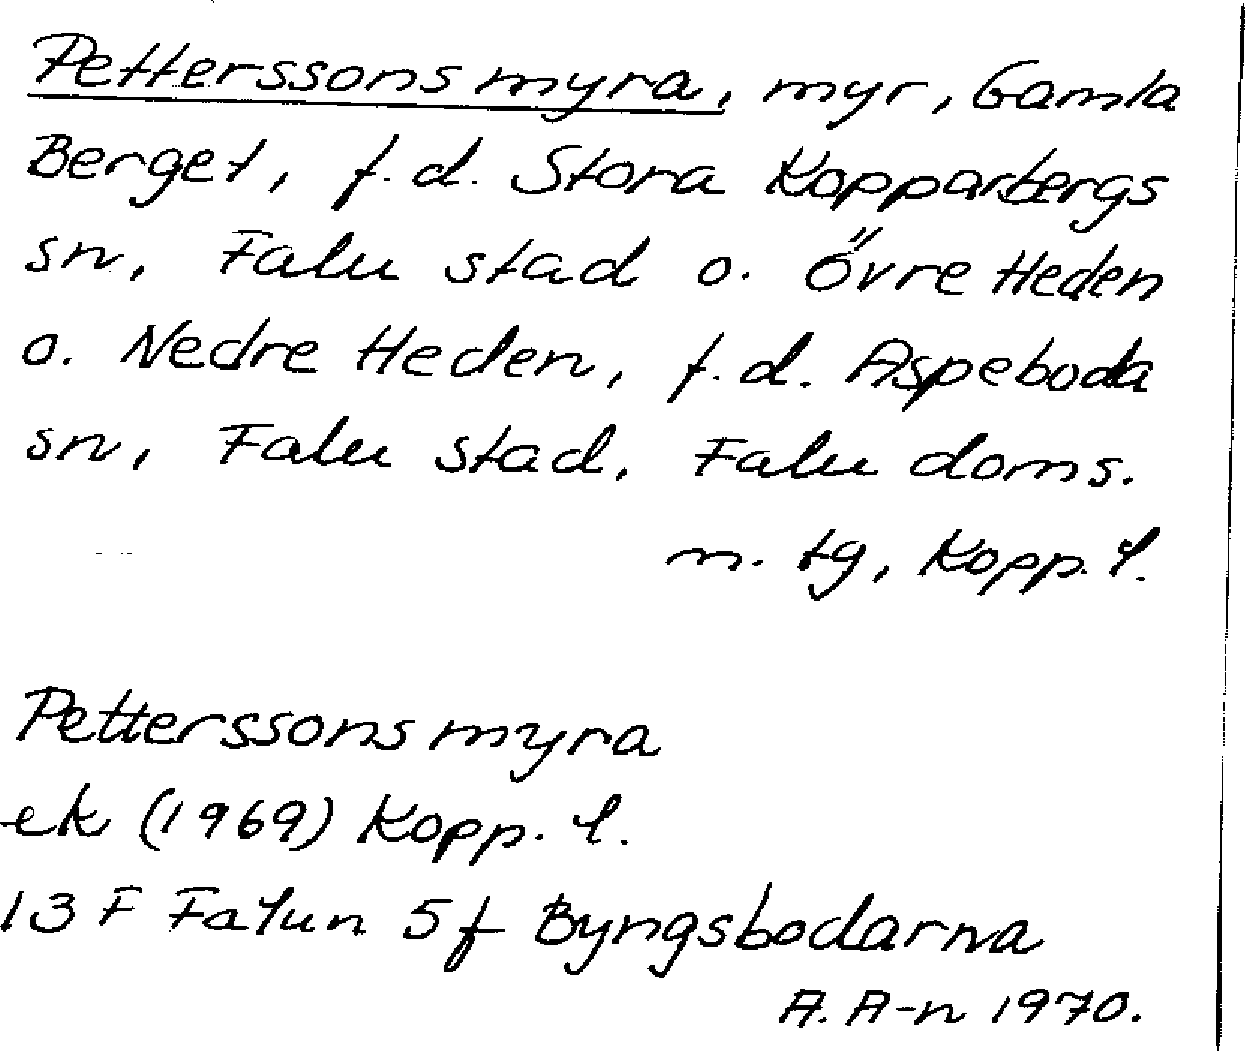 Petterssons myra, myr, Gamla
Berget, f.d. Stora Kopparbergs
sn, Falu stad o. Övre Heden
o. Nedre Heden, f.d. Aspeboda
sn, Falu stad, Falu doms.
n. tg, Kopp. l.
Petterssons myra
ek (1969) Kopp. l.
13 F Falun 5f Byngsbodarna
A. A-n 1970.